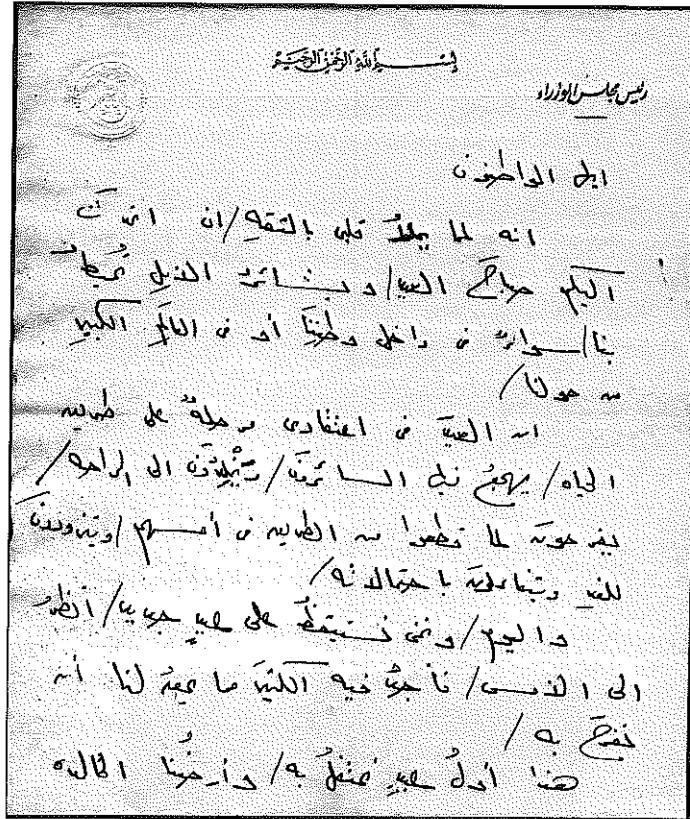 بسم الله الرحمن الرحيم
رئيس مجلس الوزراء
ايها المواطنون
انه لمما يملأ قلبى بالثقة/ ان اتحدث
اليكم صباحَ العيد/ وبشائرُ النيلِ تحيطُ
بنا/ سواء فى داخل وطنِنَا أو فى العالَمِ الكبيرِ
من حولنا/
ان العيدَ فى اعتقادى مرحلةٌ على طريق
الحياه/ يهجعُ فيها السائرونَ/ ويَخْلِدُونَ الى الراحه/
يفرحون لما قطعوا من الطريق فى أمسهم/ ويتزودونَ
للغدِ ويتفاءلون باحتمالاته/
واليوم/ ونحن نستيقظُ على عيدٍ جديد/ أنظرُ
الى الأمس/ فأجدُ فيه الكثيرَ ما يحقُ لنا أن
نفرحَ به/
هذا أولُ عيدٍ نحتفلُ به/ وأرضُنا الخالده